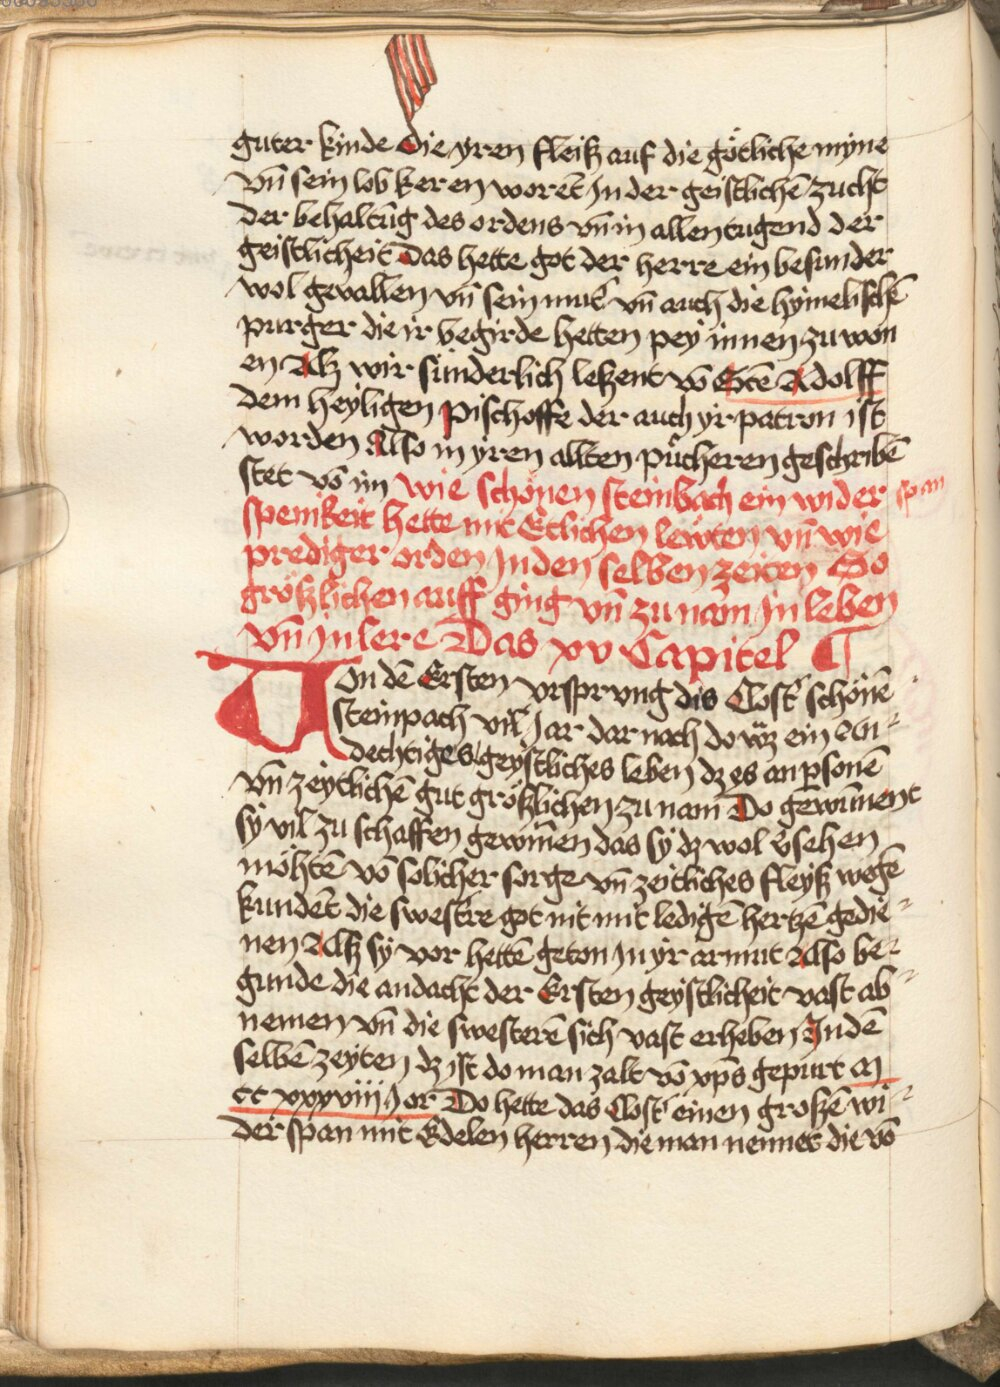 guter kinde Die yren fleiß auf die götliche myne
vn̄ sein lob keren woret̄ Jn der geistlichē zucht
der behaltūg des ordens vn̄ in allen tugend der
geistlicheit Das hette got der herre ein besunder
wol gevallen vn̄ sein mut̄ vn̄ auch die hymelischē
purger die ir begirde hetten pey innen zu won
en Alz wir sünderlich leßent vō Sctē Adolff
dem heyligen pischoffe der auch yr patron ist
worden Also in yren allten pücheren geschribē
stet vō im Wie schönen steinbach ein wider span
spenikeit hette mit Etlichen lewten vn̄ wie
prediger orden Jn den selben zeiten So
größlichen auff ging vn̄ zu nam Jn leben
vn̄ Jn lere Das xv Capitel
Von dē Ersten vrsprvng dis Clost' schönē
steinpach vil Jar dar nach do wz ein An
dechtiges geystliches leben dz es an personē
vn̄ zeytlichē gut größlichen zu nam Do gewūnent
sy vil zu schaffen gewinen das sy dz wol v̄sehen
möhtē vō solicher sorge vn̄ zeitliches fleyß wegē
kundēt die swestre got nit mit ledigē hertzē gedie
nen Alß sy vor hettē geton Jn yr armut Also be
gunde die andacht der Ersten geystlicheit vast ab
nemen vn̄ die swesterē sich vast erheben Jn dē
selbē zeyten dz ist do man zalt vō xp̄s gepurt M
cc xxxviii Jor Do hette das Clost' einen großē wi
der span mit Edelen herren die man nennet die vō